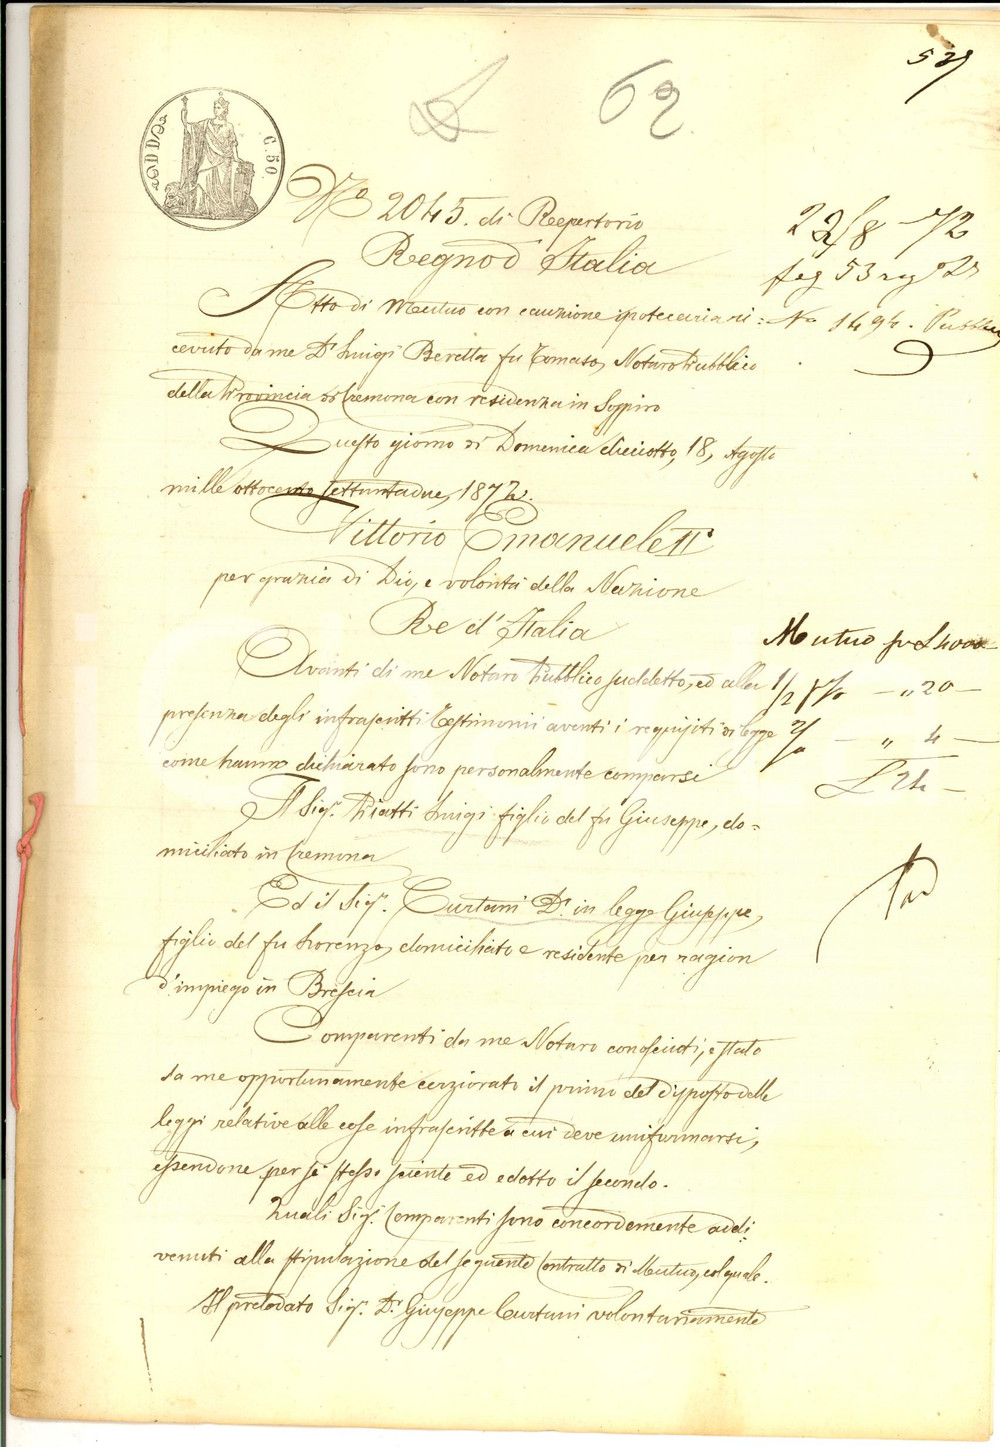 52
62
C. 50
22/8 - 72
fog 53 reg° 2°
N° 1494. Pubblici
N° 2045. di Repertorio
Regno d'Italia
Atto di Mutuo con cauzione ipotecaria ri=
cevuto da me Dr Luigi Beretta fu Tomaso, Notaro Pubblico
della Provincia di Cremona con residenza in Sospiro
Questo giorno di Domenica dieciotto, 18, Agosto
mille ottocento settantadue, 1872.
Vittorio Emanuele II°
per grazia di Dio, e volontà della Nazione
Re d'Italia
Avanti di me Notaro Pubblico suddetto, ed alla
presenza degli infrascritti Testimonii aventi i requisiti di legge
come hanno dichiarato sono personalmente comparsi
Il Sigr. Piatti Luigi figlio del fu Giuseppe, do=
miciliato in Cremona
Ed il Sigr. Curtani Dr. in legge Giuseppe,
figlio del fu Lorenzo, domiciliato e residente per ragion
d'impiego in Brescia
Comparenti da me Notaro conosciuti, e stato
da me opportunamente cerziorato il primo del disposto delle
leggi relative alle cose infrascritte a cui deve uniformarsi,
essendone per se stesso sciente ed edotto il secondo.
Quali Sigri Comparenti sono concordemente addi
venuti alla stipulazione del seguente Contratto di Mutuo, col quale.
Il prelodato Sigr. Dr Giuseppe Curtani volontariamente
Mutuo per £ 4000
1/2 p% - " 20 -
- " 4 -
£ 24 -